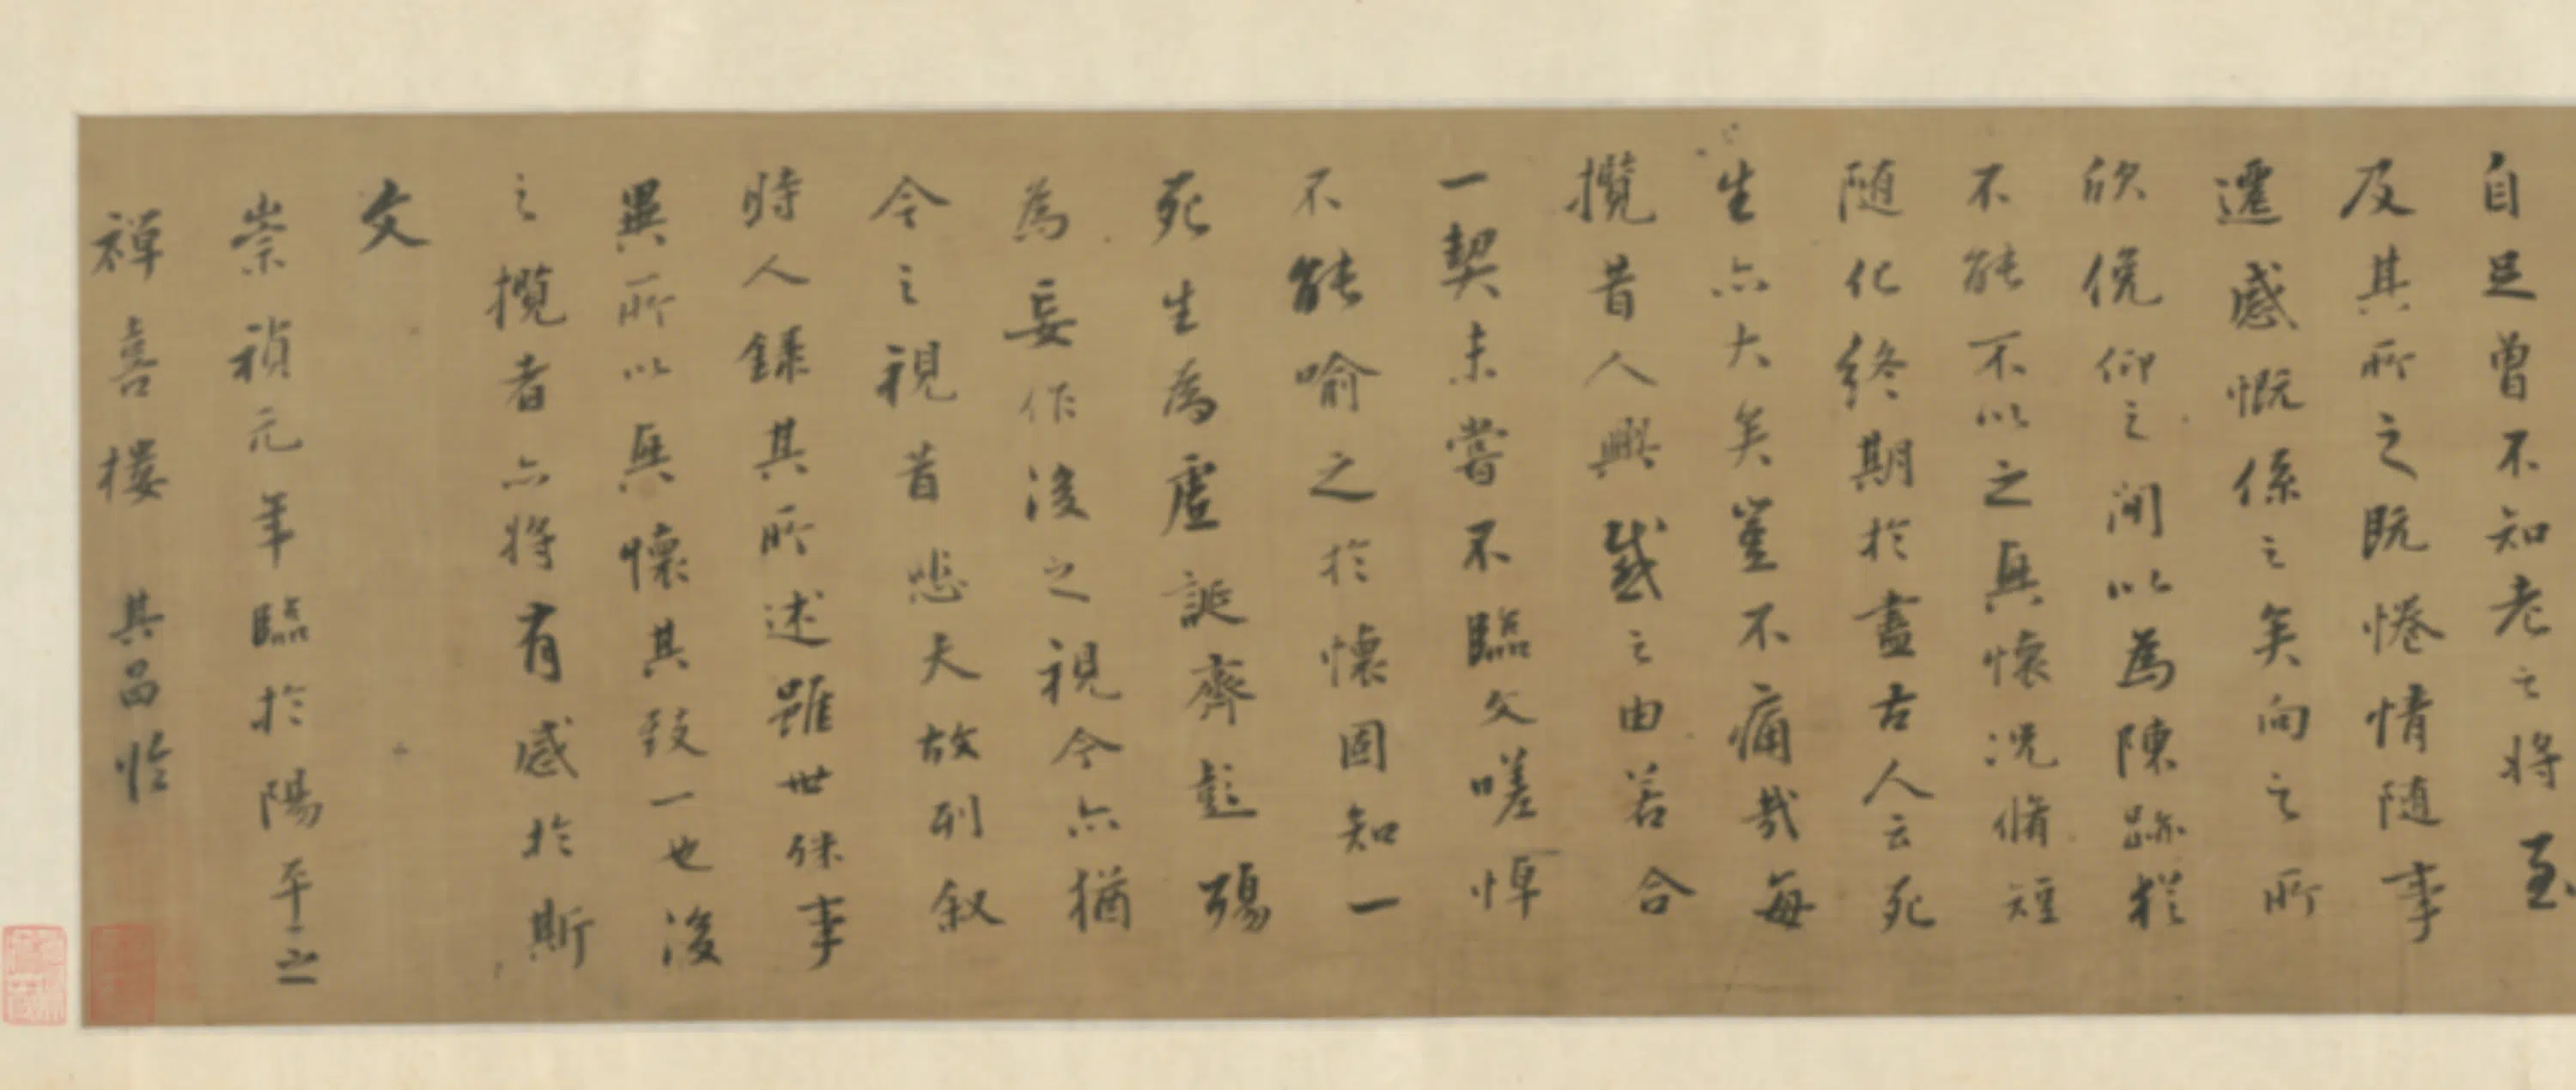 自足曾不知老之將至
及其所之既惓情隨事
遷感慨係之矣向之所
欣俛仰之間以為陳跡猶
不能不以之興懷況脩短
隨化終期於盡古人云死
生亦大矣豈不痛哉每
攬昔人興感之由若合
一契未嘗不臨文嗟悼
不能喻之於懷固知一
死生為虛誕齊彭殤
為妄作後之視今亦猶
今之視昔悲夫故列叙
時人錄其所述雖世殊事
異所以興懷其致一也後
之攬者亦將有感於斯
文
崇禎元年臨於陽平之
禪喜樓 其昌